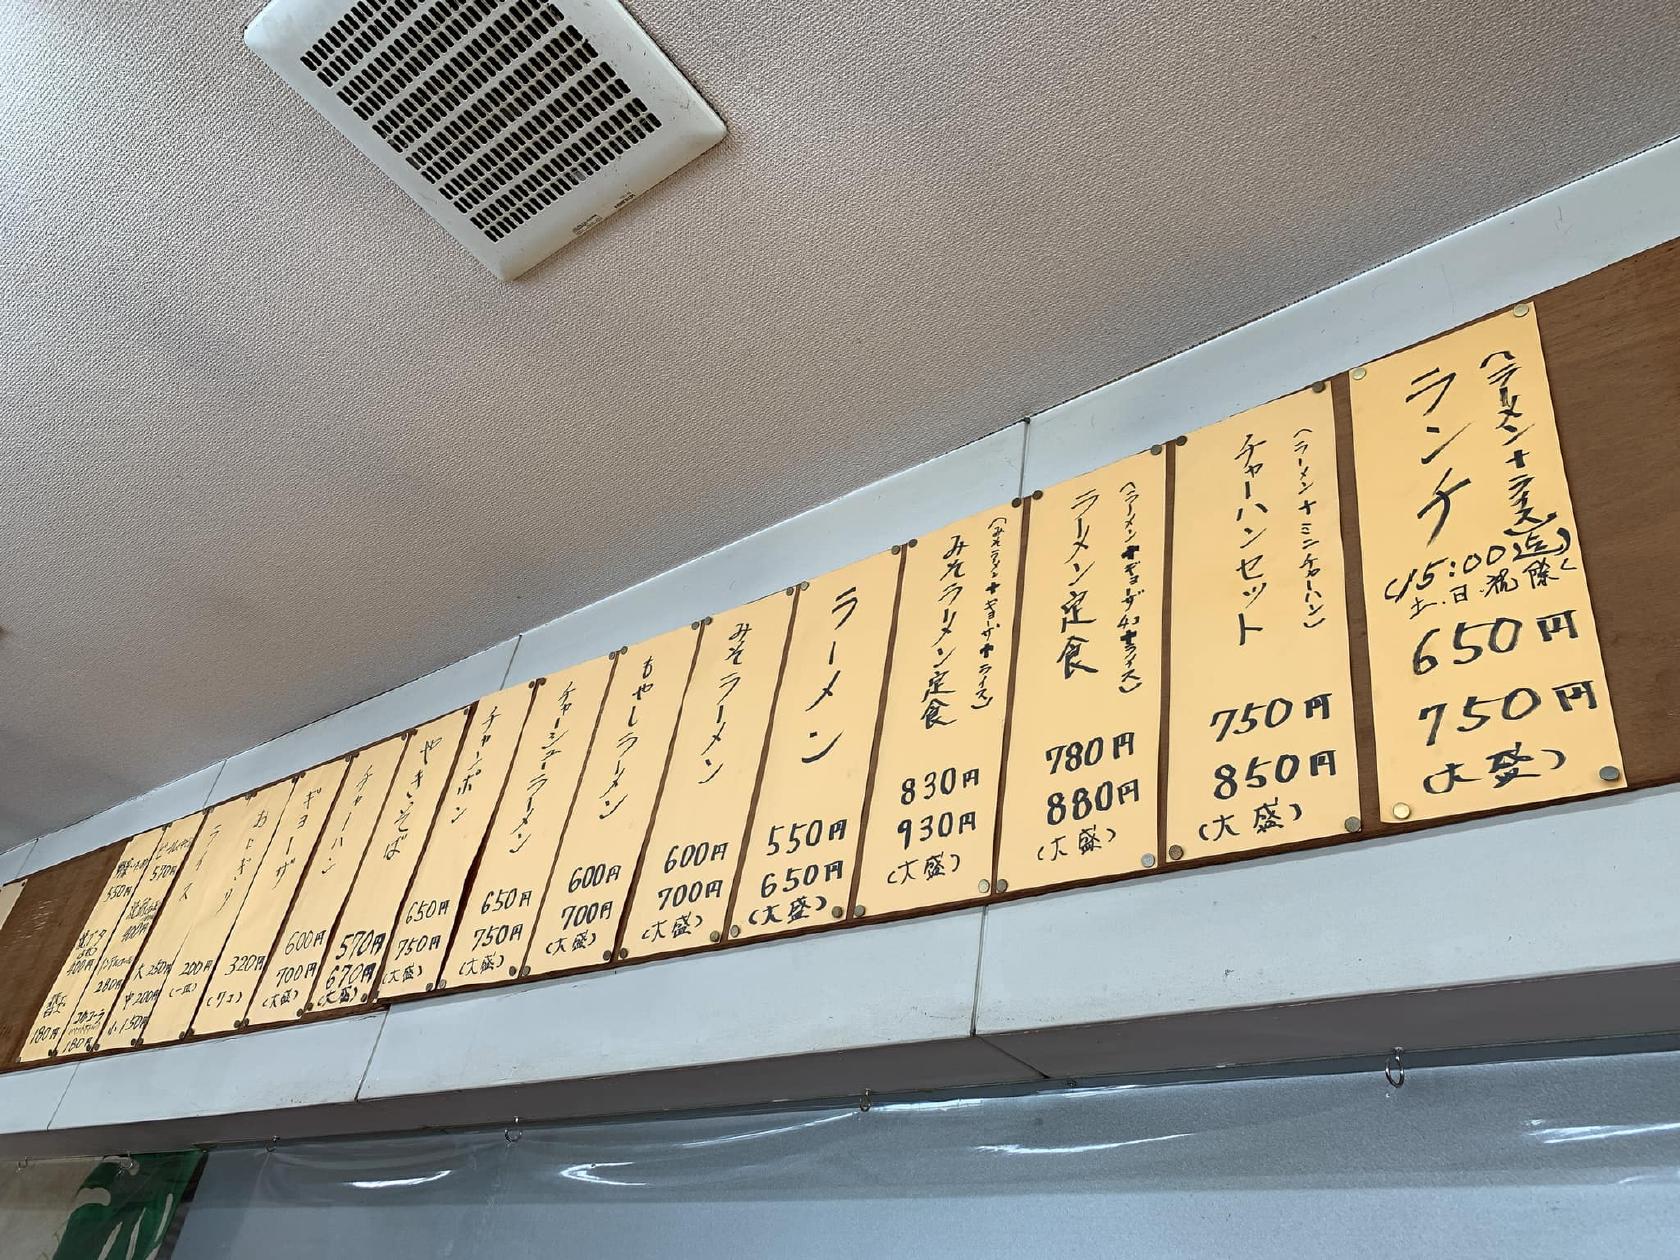 (ラーメン+ライス)
ランチ
(15:00迄)
土.日.祝 除く
650円
750円
(大盛)
(ラーメン+ミニチャーハン)
チャーハンセット
750円
850円
(大盛)
(ラーメン+ギョーザ4コ+ライス)
ラーメン定食
780円
880円
(大盛)
(みそラーメン+ギョーザ+ライス)
みそラーメン定食
830円
930円
(大盛)
ラーメン
550円
650円
(大盛)
みそラーメン
600円
700円
(大盛)
もやしラーメン
600円
700円
(大盛)
チャーシューラーメン
650円
750円
(大盛)
チャーポン
650円
750円
(大盛)
やきそば
570円
670円
(大盛)
チャーハン
600円
700円
(大盛)
ギョーザ
320円
(7コ)
おにぎり
200円
(一皿)
ライス
大250円
中200円
小150円
570円
400円
280円
コカコーラ
180円
550円
400円
180円